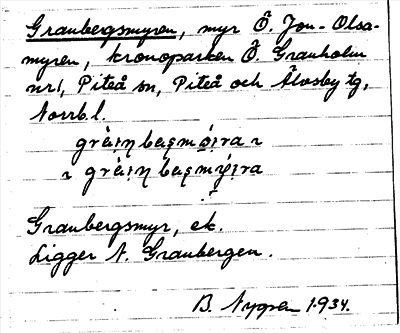 Granbergsmyren, myr Ö. Jon-Olsa-
myren, kronoparken Ö. Granholm
nr 1, Piteå sn, Piteå och Älvsby tg,
Norrb. l.
Granbergsmyr, ek.
Ligger N. Granbergen.
B. Nygren 1934.